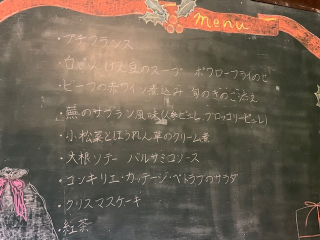 menu
・プチフランス
・白いんげん豆のスープ ポワローフライのせ
・ビーフの赤ワイン煮込み 旬の
・蕪のサフラン風味(人参ピュレ、ブロッコリーピュレ)
・小松菜とほうれん草のクリーム煮
・大根ソテー バルサミコソース
・コンキリエ・カッテージ・ベトラフのサラダ
・クリスマスケーキ
・紅茶